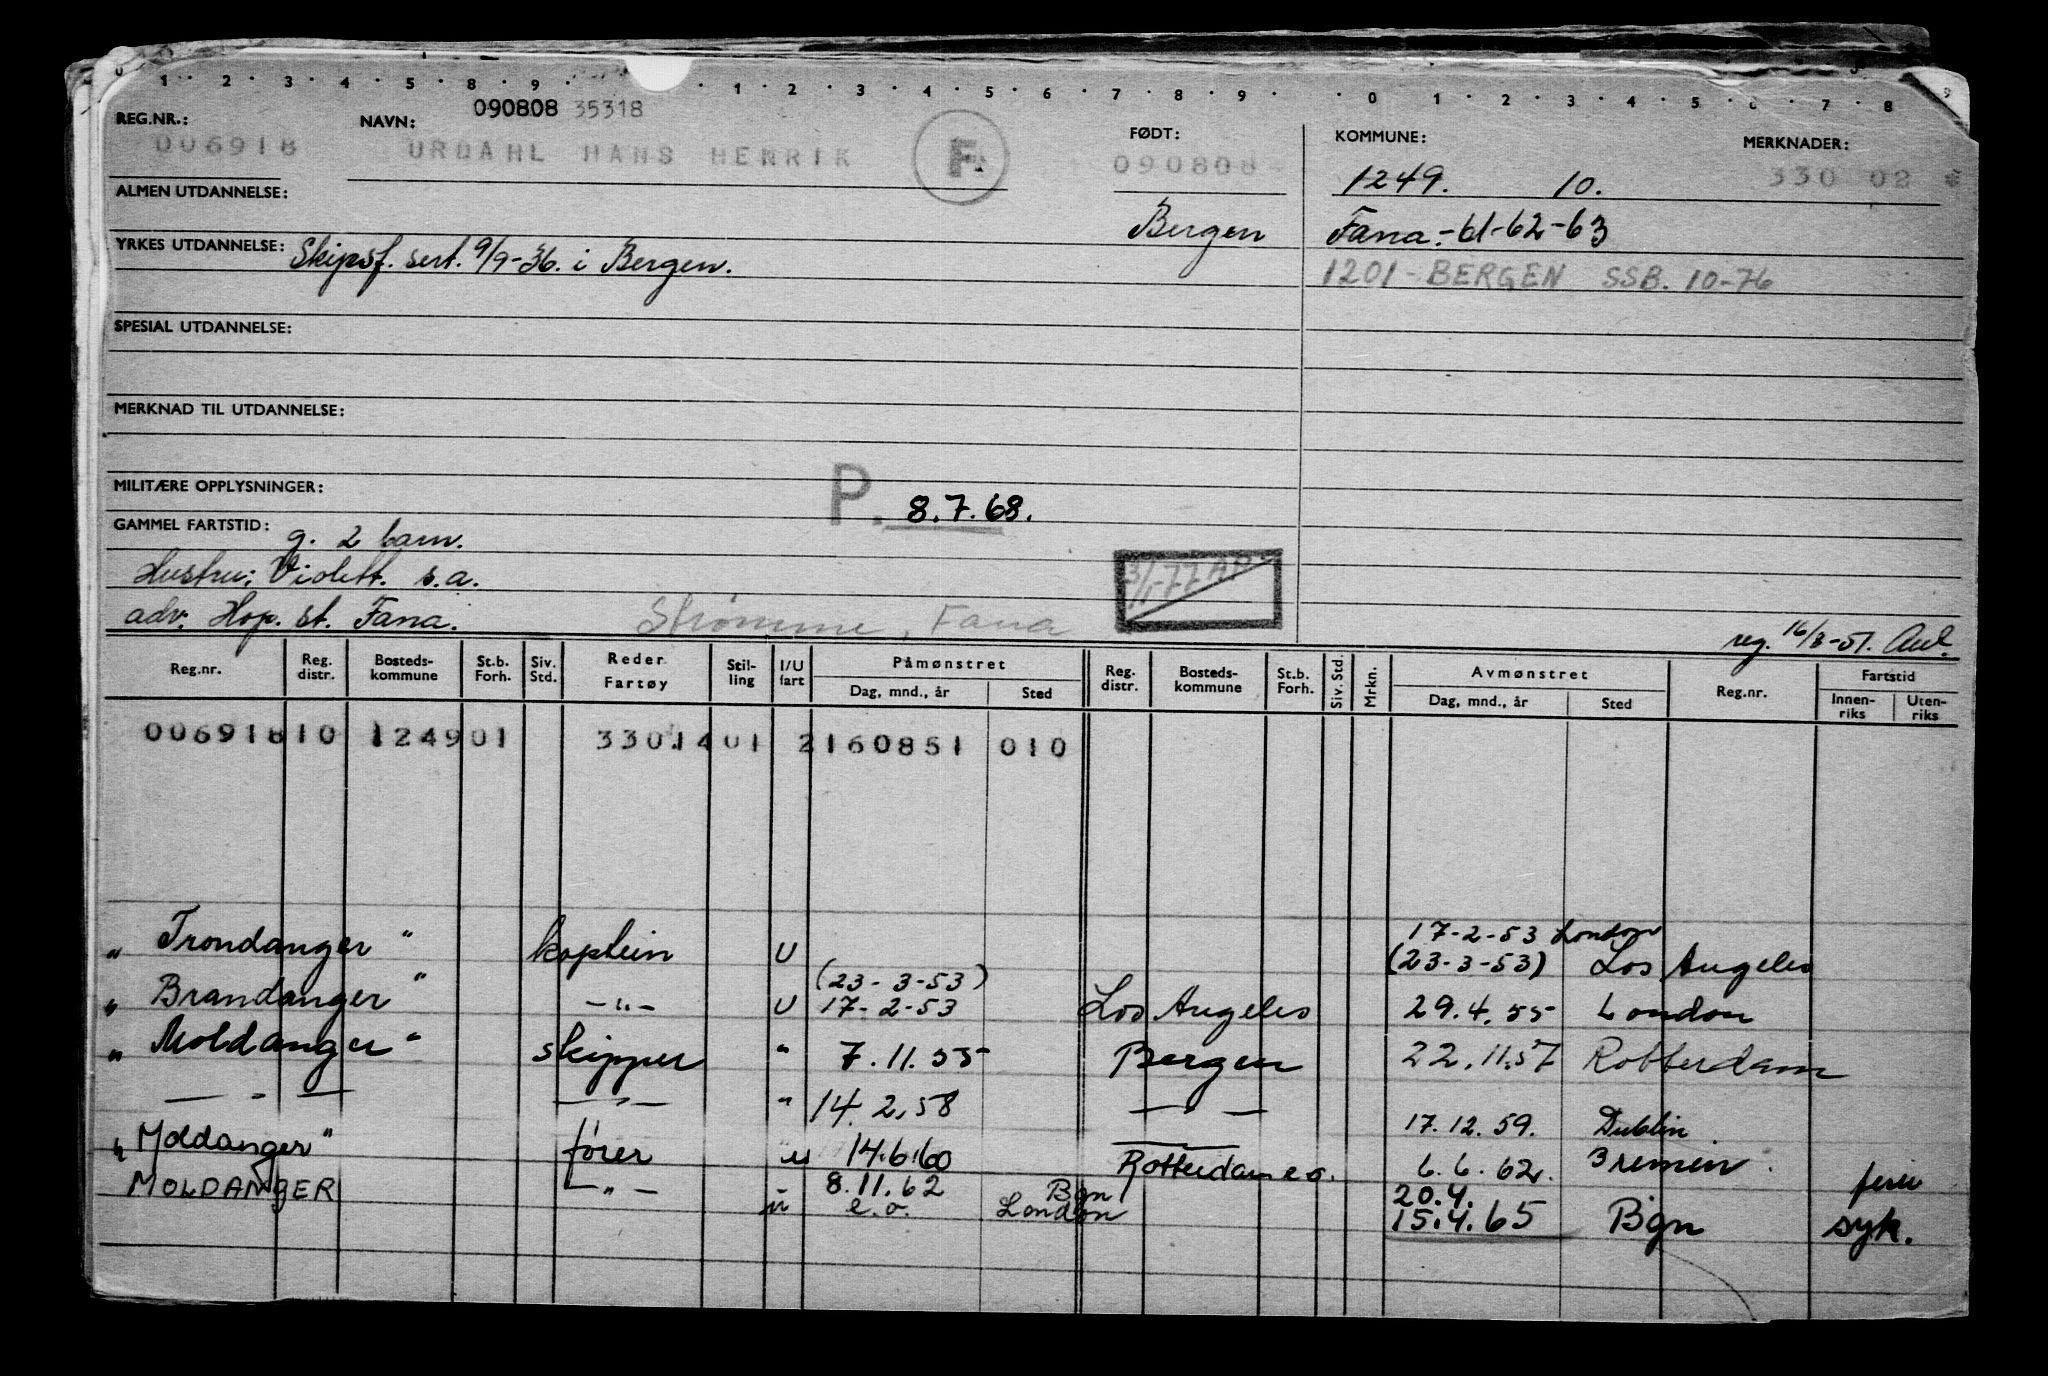 0 1 2 3 4 5 8 9 1 2 3 4 5 6 7 8 9 0 1 2 3 4 5 6 7 8 9
090808 35318
REG.NR.: NAVN: FØDT: KOMMUNE: MERKNADER:
006918 URDAHL HANS HENRIK F. 090808 1249. 10. 330 02
ALMEN UTDANNELSE: Bergen Fana.-61-62-63
YRKES UTDANNELSE: Skipsf. sert. 9/9-36. i Bergen. 1201-BERGEN SSB. 10-76
SPESIAL UTDANNELSE:
MERKNAD TIL UTDANNELSE:
MILITÆRE OPPLYSNINGER: P. 8.7.68.
GAMMEL FARTSTID: g. 2 barn.
Hustru: Violett. s.a. 3/1-77 AP
adr. Hop. st. Fana. Strømme, Fana reg. 16/8-51.
Reg.nr. Reg. distr. Bosteds-kommune St.b. Forh. Siv. Std. Reder Fartøy Stil-ling I/U fart Påmønstret Dag, mnd., år Sted Reg. distr. Bosteds-kommune St.b. Forh. Siv. Std. Mrkn. Avmønstret Dag, mnd., år Sted Reg.nr. Fartstid Innen-riks Uten-riks
006918 10 1249 01 330.14 01 2 160851 010
17-2-53 London
„Trondanger" kaptein U (23-3-53) Los Angeles
(23-3-53)
„Brandanger" -„- U 17-2-53 Los Angeles 29.4.55 London
„Moldanger" skipper " 7.11.55 Bergen 22.11.57 Rotterdam
— „ — — „ — " 14.2.58 — „ — 17.12.59. Dublin
„Moldanger" fører u 14.6.60 Rotterdam e.o. 6.6.62. Bremen. ferie
MOLDANGER -„- 8.11.62 Bgn 20.4.
u e.o. London 15.4.65 Bgn syk.